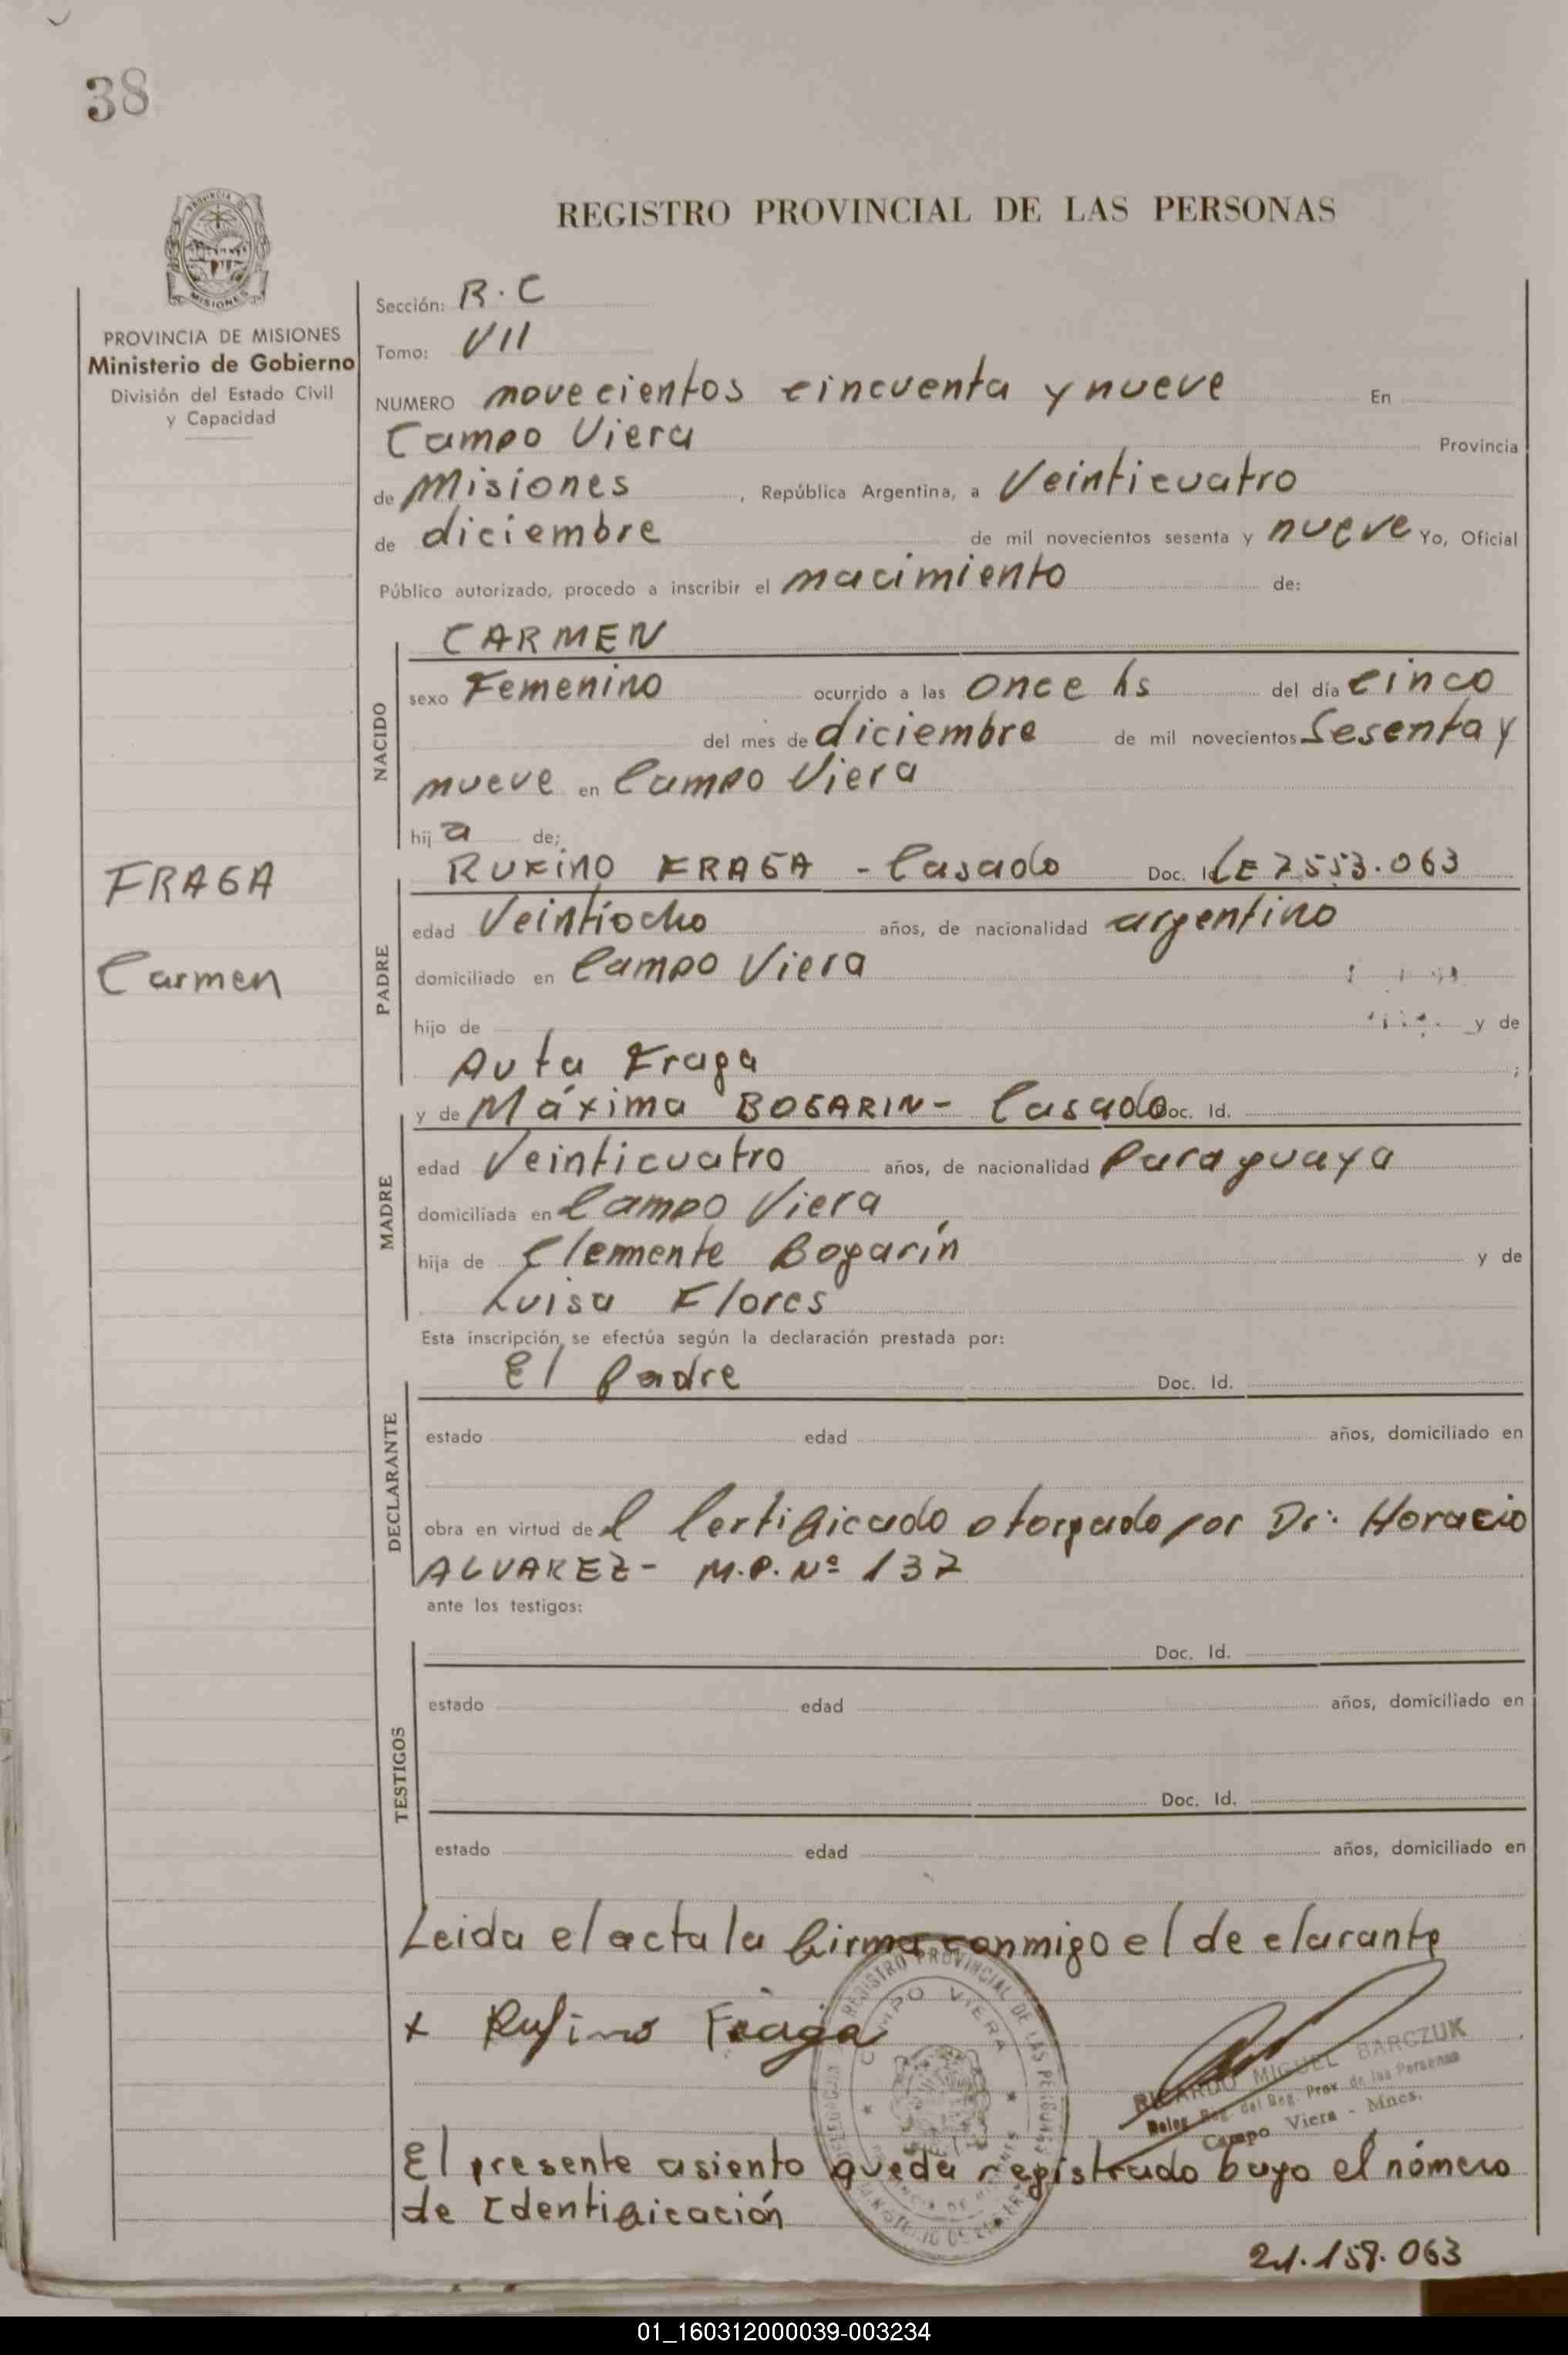 38
REGISTRO PROVINCIAL DE LAS PERSONAS
PROVINCIA DE MISIONES
Ministerio de Gobierno
División del Estado Civil
y Capacidad
Sección: R.C
Tomo: VII
NUMERO novecientos cincuenta y nueve En
Campo Viera Provincia
de Misiones, República Argentina, a Veinticuatro
de diciembre de mil novecientos sesenta y nueve Yo, Oficial
Público autorizado, procedo a inscribir el nacimiento de:
NACIDO
CARMEN
sexo Femenino ocurrido a las once hs del día cinco
del mes de diciembre de mil novecientos Sesenta y
nueve en Campo Viera
hij a de;
FRAGA
Carmen
PADRE
RUFINO FRAGA - Casado Doc. Id LE 7553.063
edad Veintiocho años, de nacionalidad argentino
domiciliado en Campo Viera
hijo de y de
Auta Fraga ;
MADRE
y de Máxima BOGARIN- Casado Doc. Id.
edad Veinticuatro años, de nacionalidad Paraguaya
domiciliada en Campo Viera
hija de Clemente Bogarín y de
Luisa Flores
Esta inscripción se efectúa según la declaración prestada por:
DECLARANTE
El Padre Doc. Id.
estado edad años, domiciliado en
obra en virtud de l Certificado otorgado por Dr: Horacio
ALVAREZ- M.P. Nº 137
ante los testigos:
TESTIGOS
Doc. Id.
estado edad años, domiciliado en
Doc. Id.
estado edad años, domiciliado en
Leida el acta la firma conmigo el declarante
x Rufino Fraga
REGISTRO PROVINCIAL DE LAS PERSONAS
CAMPO VIERA
RICARDO MIGUEL BARCZUK
Deleg. Reg. del Reg. Prov. de las Personas
Campo Viera - Mnes.
El presente asiento queda registrado bajo el número
de Identificación
21.159.063
01_160312000039-003234